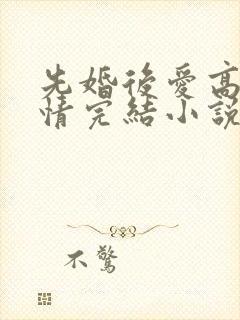 先婚後愛高
情完結小說
不驚